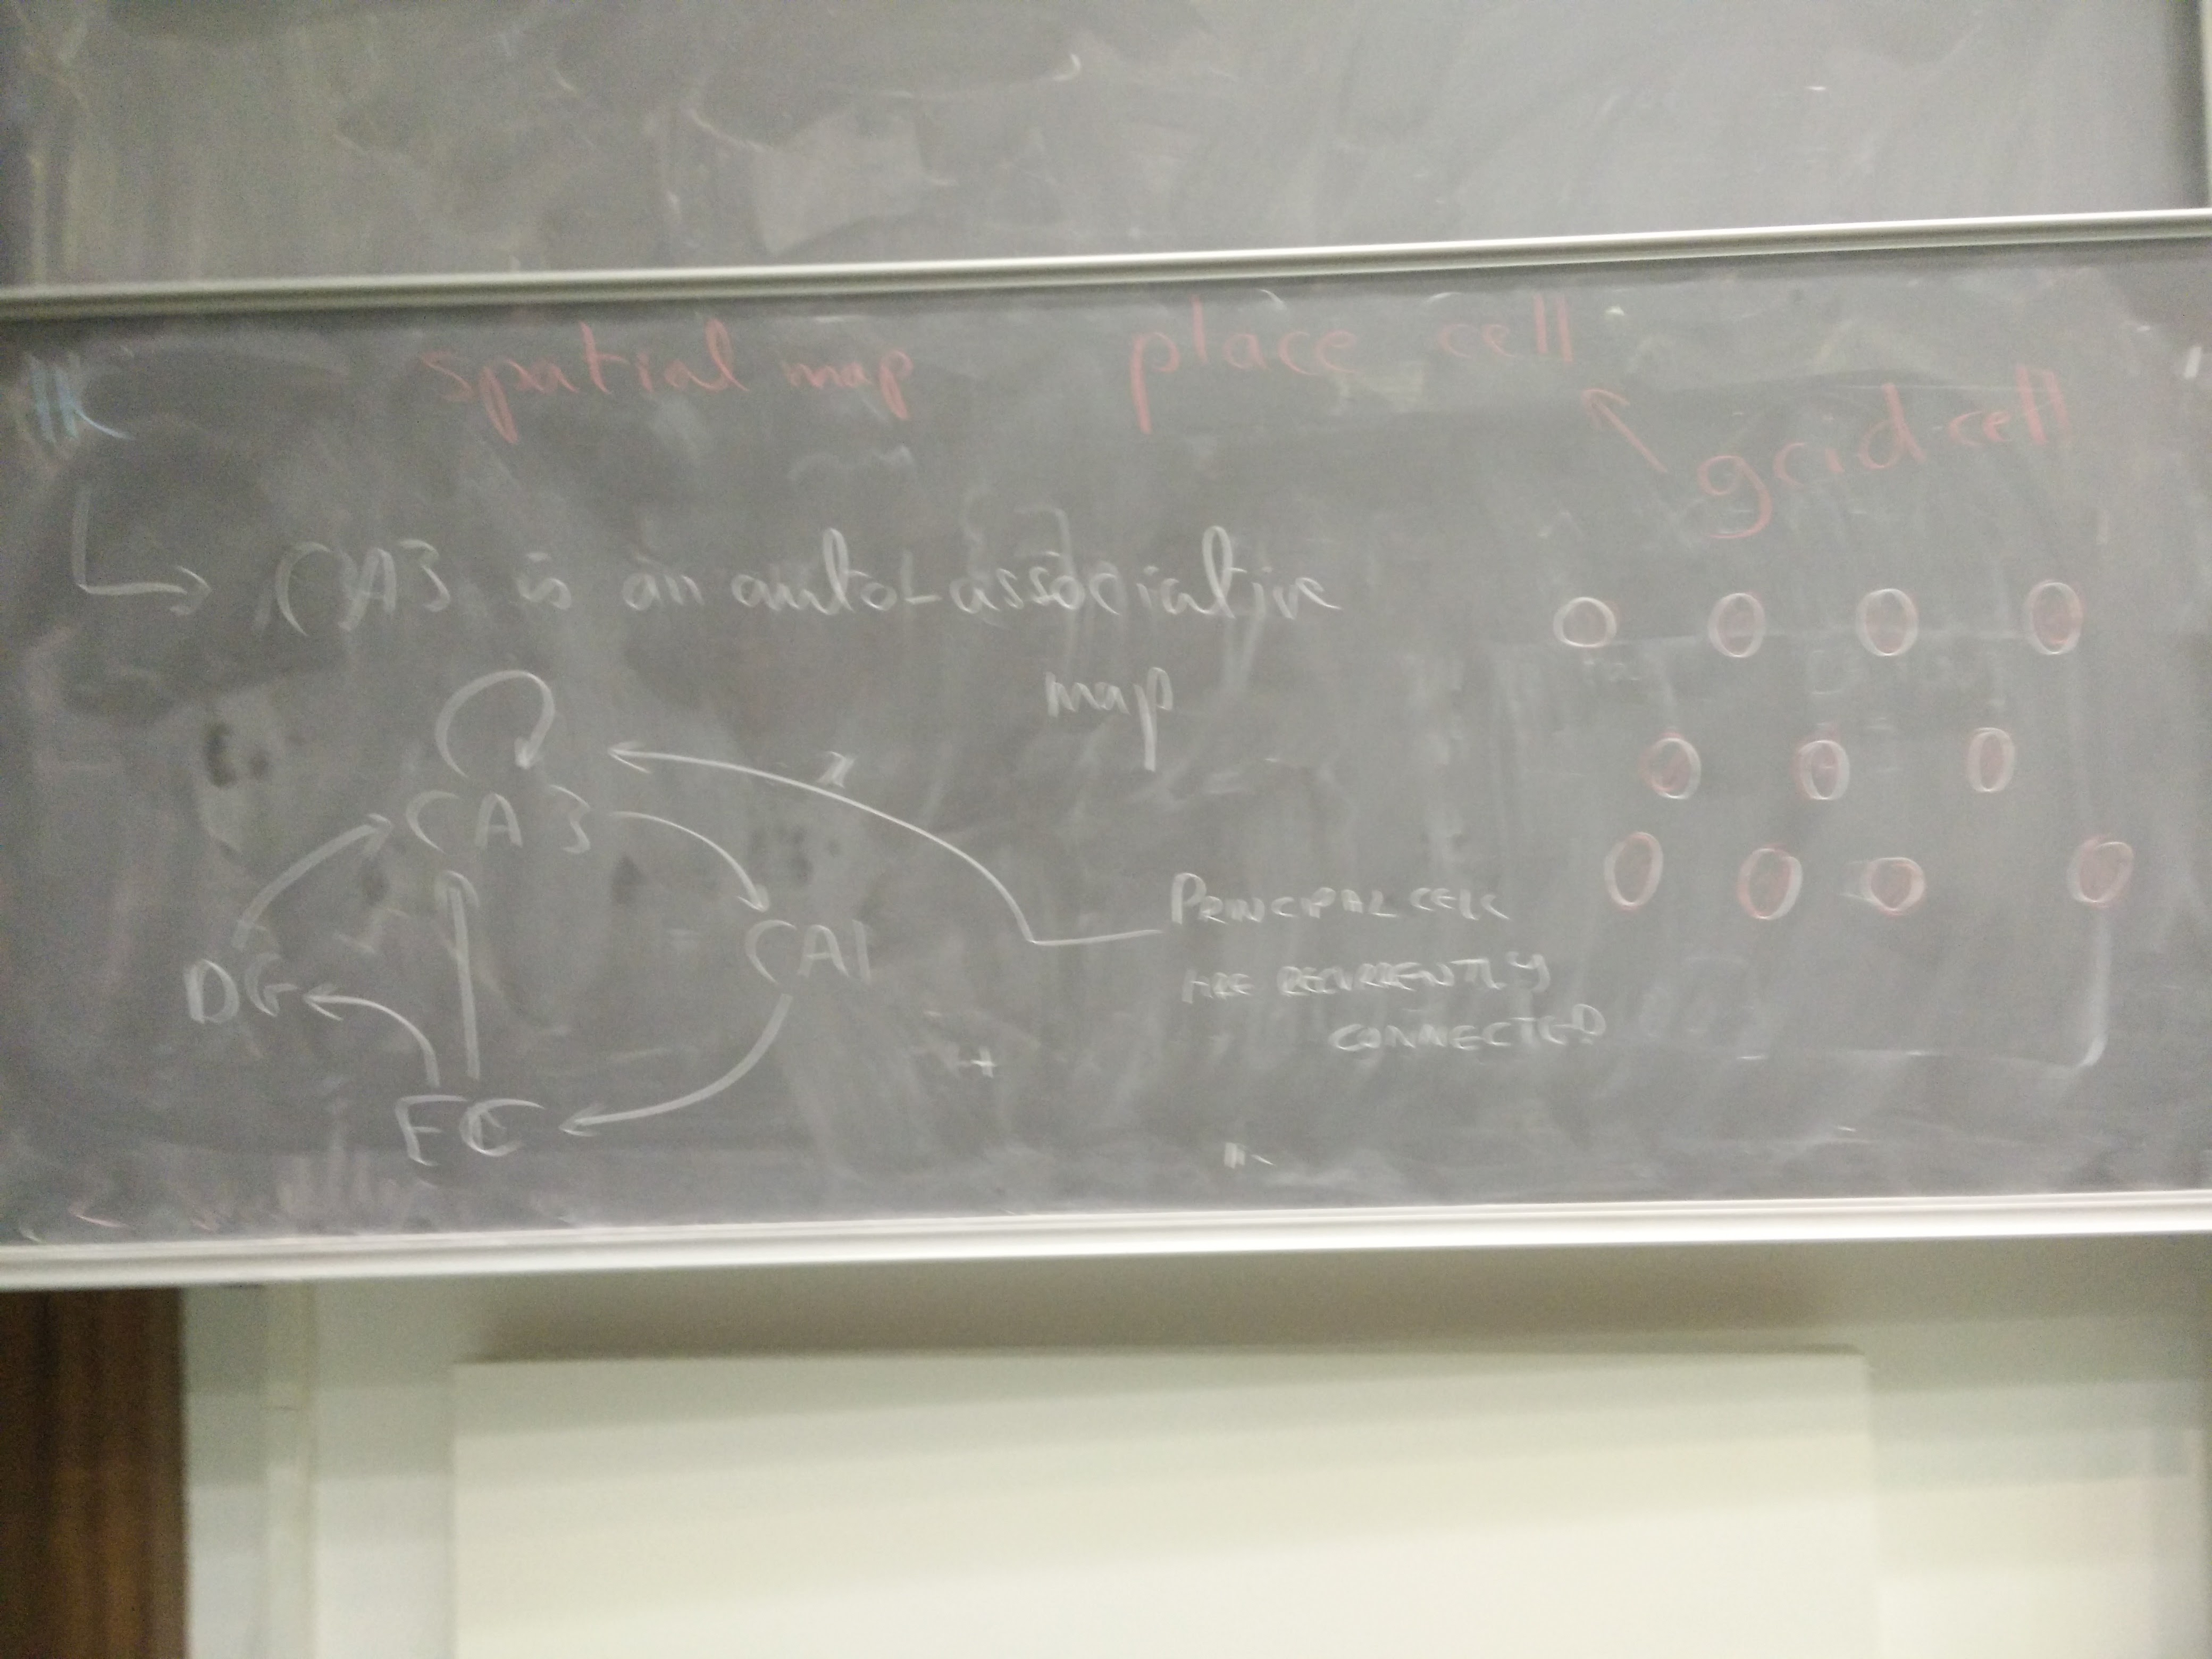 spatial map
place cell
grid cell
CA3 is an auto-associative
map
CA3
DG
CA1
EC
PRINCIPAL CELLS
ARE RECURRENTLY
CONNECTED